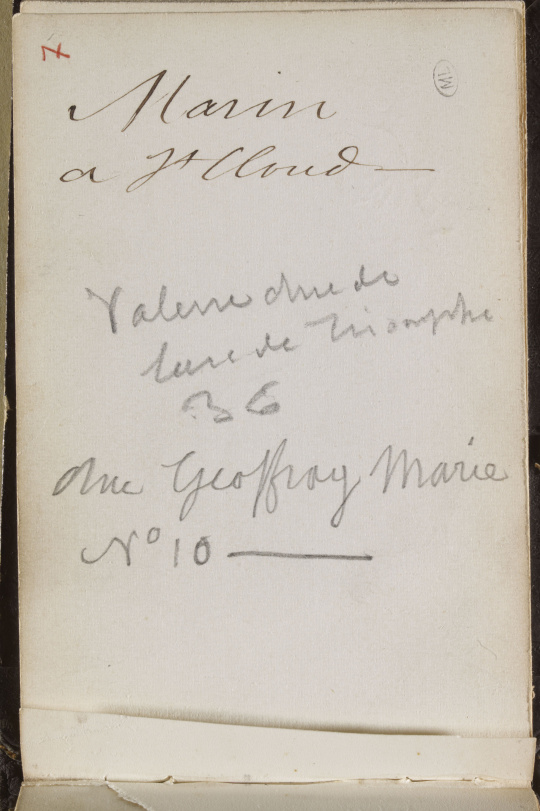 7
ML
Marin
a St Cloud —
Valerie rue de
larc de Triomphe
36
rue Geoffroy Marie
No 10 —